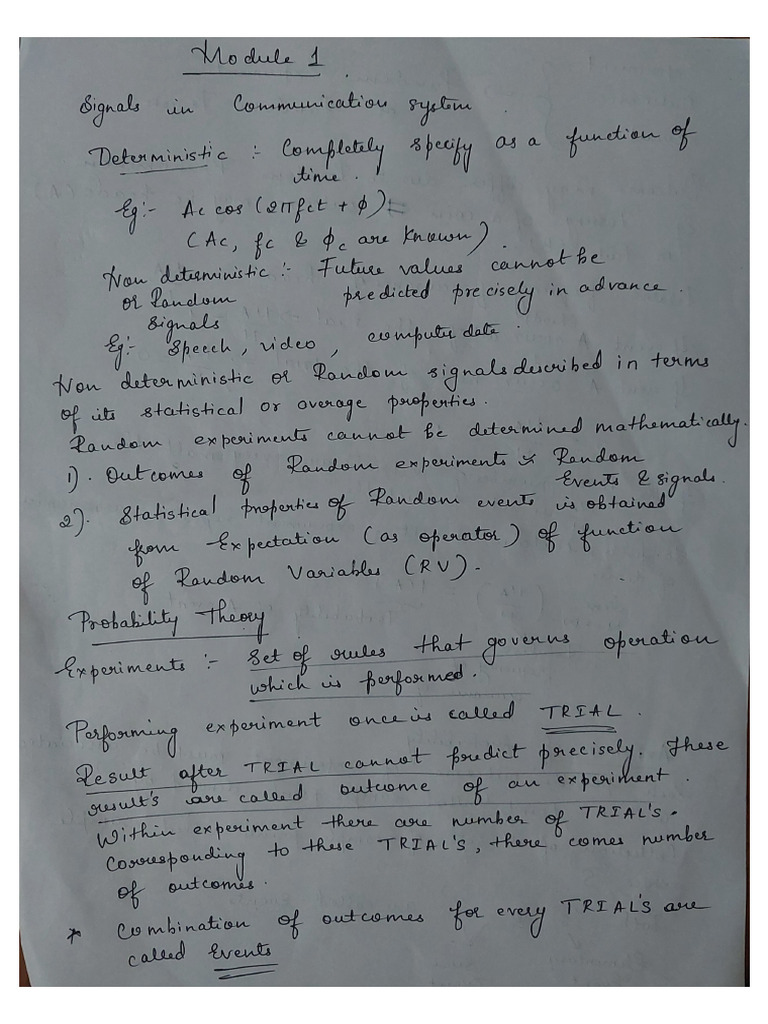 Module 1
Signals in Communication system
Deterministic :- Completely specify as a function of
time.
Eg:- Ac cos (2πfct + ϕ)
(Ac, fc & ϕc are known)
Non deterministic :- Future values cannot be
or Random predicted precisely in advance.
Signals
Eg:- Speech, video, computer date.
Non deterministic or Random signals described in terms
of its statistical or average properties.
Random experiments cannot be determined mathematically.
1). Outcomes of Random experiments is Random
Events & signals.
2). Statistical properties of Random events is obtained
from Expectation (as operator) of function
of Random Variables (RV).
Probability Theory
Experiments :- Set of rules that governs operation
which is performed.
Performing experiment once is called TRIAL.
Result after TRIAL cannot predict precisely. These
result's are called outcome of an experiment.
Within experiment there are number of TRIAL's.
Corresponding to these TRIAL'S, there comes number
of outcomes.
* Combination of outcomes for every TRIAL'S are
called Events